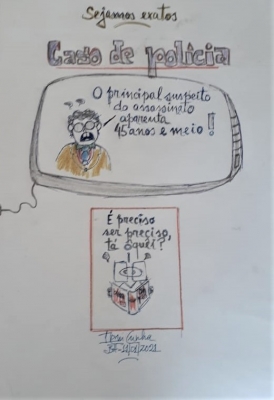 Sejamos exatos
Caso de polícia
O principal suspeito
do assassinato
aparenta
45 anos e meio!
É preciso
ser preciso,
tá oquei?